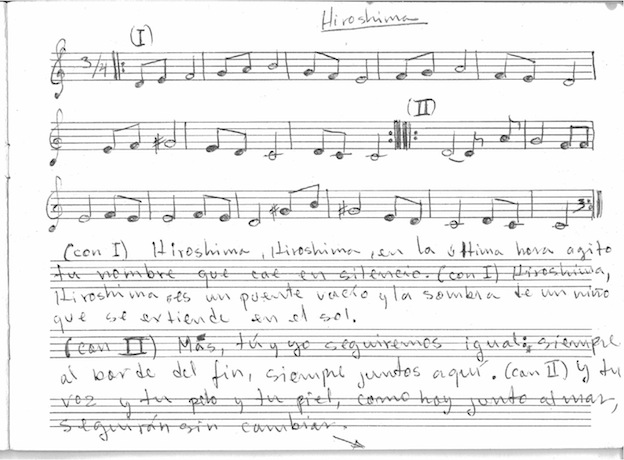 Hiroshima
(I)
3/4
(II)
3
(con I) Hiroshima, Hiroshima, en la última hora agito
tu nombre que cae en silencio. (con I) Hiroshima,
Hiroshima es un puente vacío y la sombra de un niño
que se extiende en el sol.
(con II) Más, tú y yo seguiremos igual: siempre
al borde del fin, siempre juntos aquí. (con II) y tu
voz y tu pelo y tu piel, como hoy junto al mar,
seguirán sin cambiar.